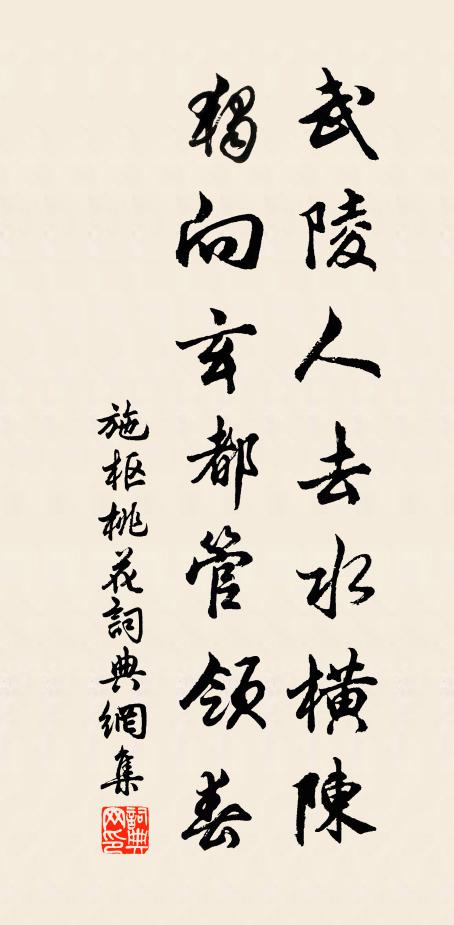 武陵人去水橫陳
獨向玄都管領春
施枢桃花詞典網集
詞典网印